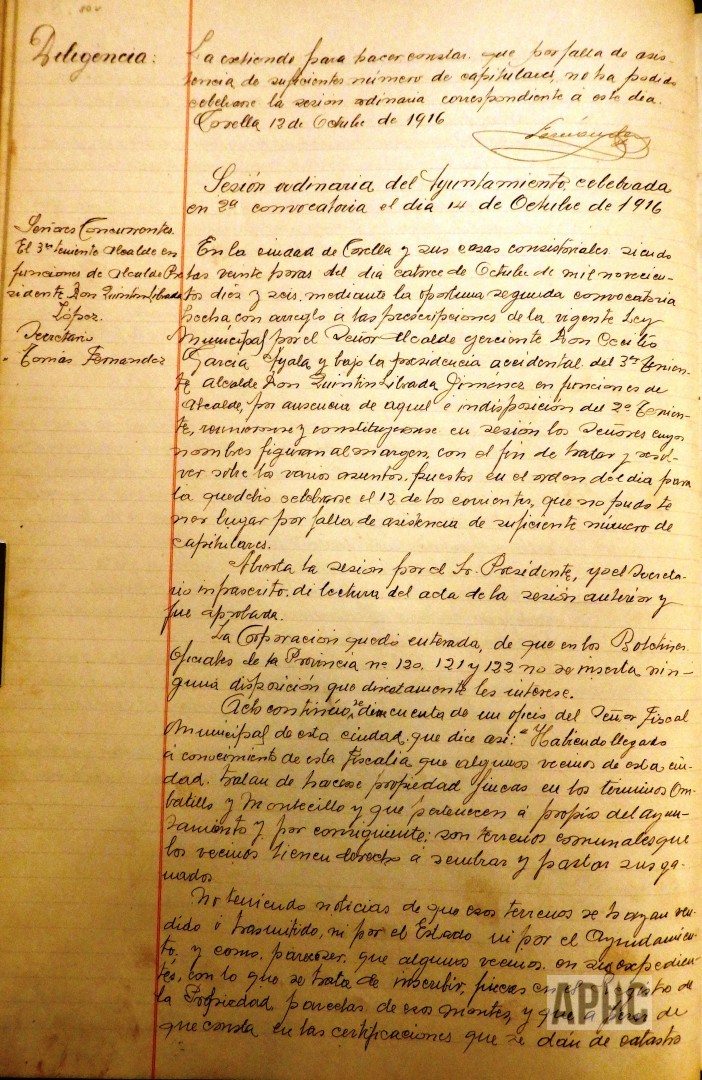 Diligencia:
La extiendo para hacer constar que por falta de asis-
tencia de suficientes número de capitulares, no ha podido
celebrarse la sesion ordinaria correspondiente á este dia.
Corella 12 de Octubre de 1916
Fernandez
Sesión ordinaria del Ayuntamiento, celebrada
en 2ª convocatoria el dia 14 de Octubre de 1916
Señores Concurrentes
El 3er teniente Alcalde en
funciones de Alcalde Pre
sidente Don Quintin Librada
López.
Secretario
Tomás Fernandez
En la ciudad de Corella y sus casas consistoriales siendo
las veinte horas del dia catorce de Octubre de mil novecien-
tos diez y seis, mediante la oportuna segunda convocatoria
hecha con arreglo á las prescripciones de la vigente Ley
Municipal por el Señor Alcalde ejerciente Don Cecilio
Garcia Ayala y bajo la presidencia accidental del 3er Tenien-
te Alcalde Don Quintin Librada Jimenez en funciones de
Alcalde, por ausencia de aquel é indisposición del 2º Tenien-
te, reunieronse y constituyeronse en sesión los Señores cuyos
nombres figuran al margen, con el fin de tratar y resol-
ver sobre los varios asuntos puestos en el orden del dia para
la que debio celebrarse el 12 de los corrientes, que no pudo te
ner lugar por falta de asistencia de suficiente número de
capitulares.
Abierta la sesión por el Sr. Presidente, yo el Secreta-
rio infrascrito, di lectura del acta de la sesión anterior y
fue aprobada.
La Corporación quedó enterada, de que en los Boletines
Oficiales de la Provincia nº 120, 121 y 122 no se inserta nin-
guna disposición que directamente les interese.
Acto continúo, se dio cuenta de un oficio del Señor Fiscal
Municipal de esta ciudad que dice asi: "Habiendo llegado
á conocimiento de esta Fiscalia que algunos vecinos de esta ciu-
dad, tratan de hacerse propiedad fincas en los términos Om-
batillo y Montecillo y que pertenecen á propios del ayun-
tamiento y por consiguiente; son terrenos comunales que
los vecinos tienen derecho á sembrar y pastar sus ga-
nados.
No teniendo noticias de que esos terrenos se hayan ven-
dido ó trasmitido, ni por el Estado ni por el Ayuntamien-
to, y como parecer que algunos vecinos en sus expedien-
tes, con lo que se trata de inscribir, fincas en el Registro de
la Propiedad parcelas de esos montes, y que de
que consta en las certificaciones que se dán de catastro
APUC